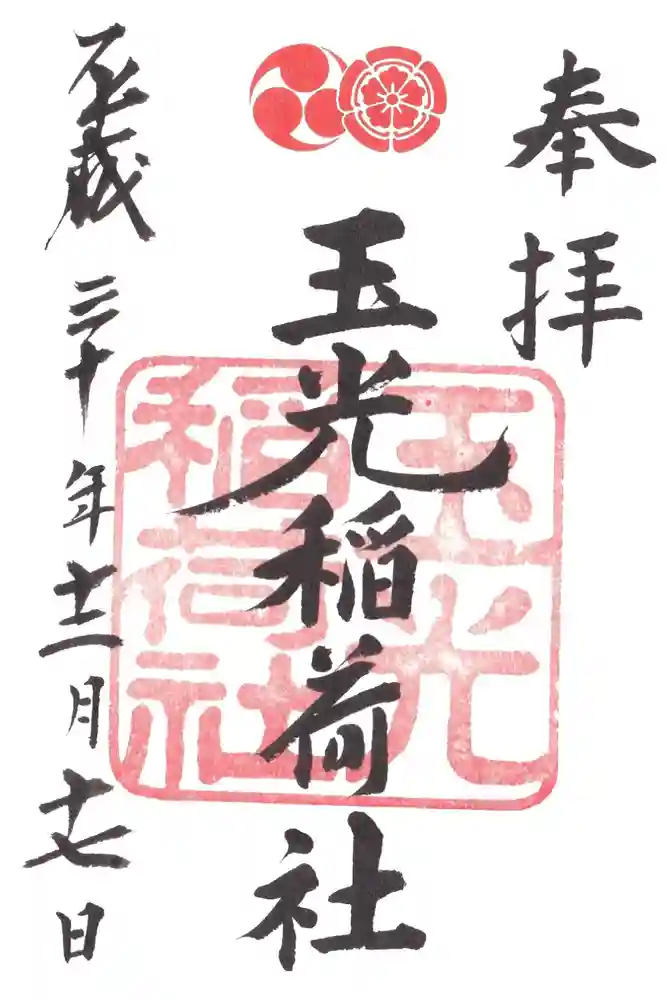 奉拝
玉光稲荷社
平成三十年十二月十七日
玉光
稲荷社